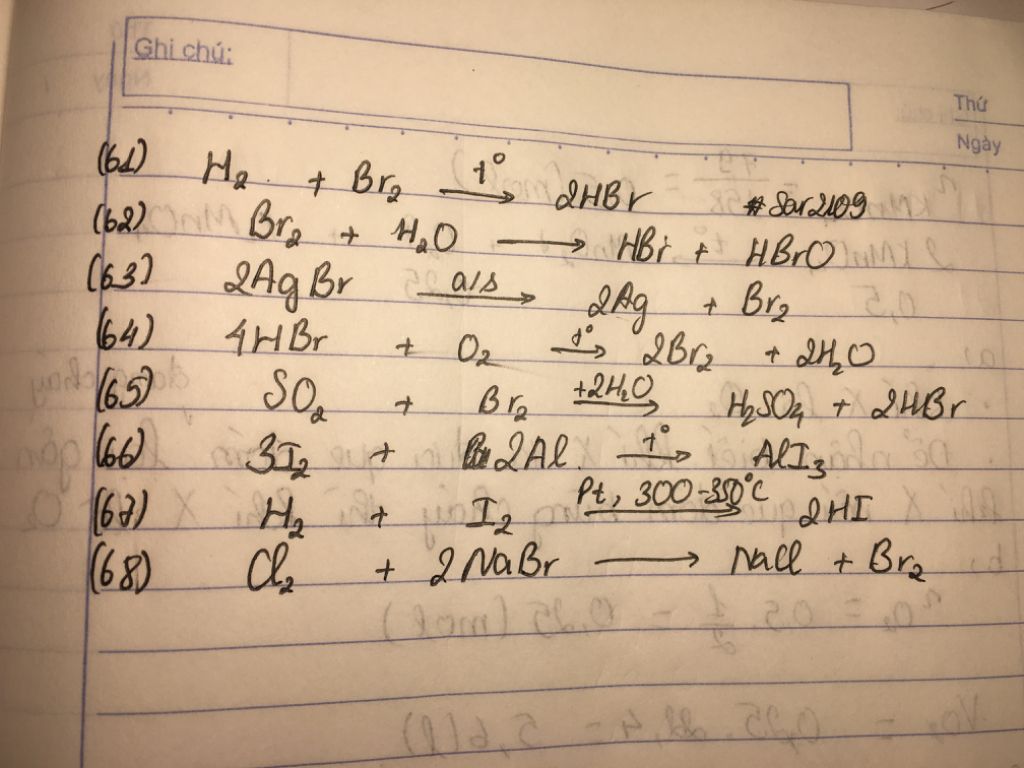 Ghi chú:
Thứ
Ngày
(61) H₂ + Br₂ —t°→ 2HBr #Sar2109
(62) Br₂ + H₂O → HBr + HBrO
(63) 2AgBr —a/s→ 2Ag + Br₂
(64) 4HBr + O₂ —t°→ 2Br₂ + 2H₂O
(65) SO₂ + Br₂ —+2H₂O→ H₂SO₄ + 2HBr
(66) 3I₂ + 2Al —t°→ AlI₃
(67) H₂ + I₂ —Pt, 300-350°C→ 2HI
(68) Cl₂ + 2NaBr → NaCl + Br₂